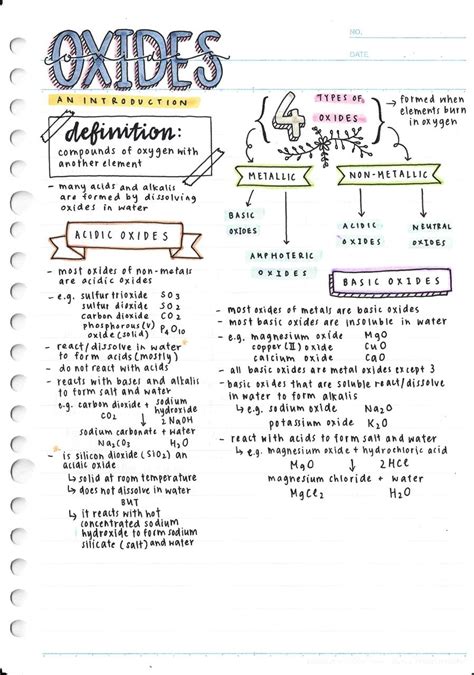 NO.
DATE
OXIDES
AN INTRODUCTION
definition:
compounds of oxygen with
another element
- many acids and alkalis
are formed by dissolving
oxides in water
ACIDIC OXIDES
- most oxides of non-metals
are acidic oxides
- e.g. sulfur trioxide SO3
sulfur dioxide SO2
carbon dioxide CO2
phosphorous(V) oxide P4O10
- react/dissolve in water *
to form acids (mostly)
- do not react with acids
- reacts with bases and alkalis
to form salt and water
e.g. carbon dioxide + sodium hydroxide
CO2 ↓ 2NaOH
sodium carbonate + water
Na2CO3 H2O
* - is silicon dioxide (SiO2) an
acidic oxide
↳ solid at room temperature
↳ does not dissolve in water
BUT
↳ it reacts with hot
concentrated sodium
hydroxide to form sodium
silicate (salt) and water
4 TYPES OF
OXIDES
→ formed when
elements burn
in oxygen
METALLIC
NON-METALLIC
BASIC
OXIDES
AMPHOTERIC
OXIDES
ACIDIC
OXIDES
NEUTRAL
OXIDES
BASIC OXIDES
- most oxides of metals are basic oxides
- most basic oxides are insoluble in water
- e.g. magnesium oxide MgO
copper (II) oxide CuO
calcium oxide CaO
- all basic oxides are metal oxides except 3
- basic oxides that are soluble react/dissolve
in water to form alkalis
↳ e.g. sodium oxide Na2O
potassium oxide K2O
- react with acids to form salt and water
↳ e.g. magnesium oxide + hydrochloric acid
MgO ↓ 2HCl
magnesium chloride + water
MgCl2 H2O